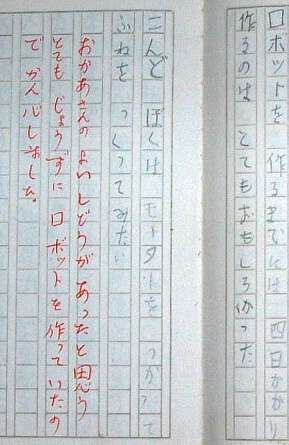 ロボットを 作るまでには 四日かかり
作るのは とてもおもしろかった
こんど ぼくは モーターを つかって
ふねを つくってみたい
おかあさんの よいしどうが あったと思う
とても じょうずに ロボットを 作っていたの
で かん心しました。